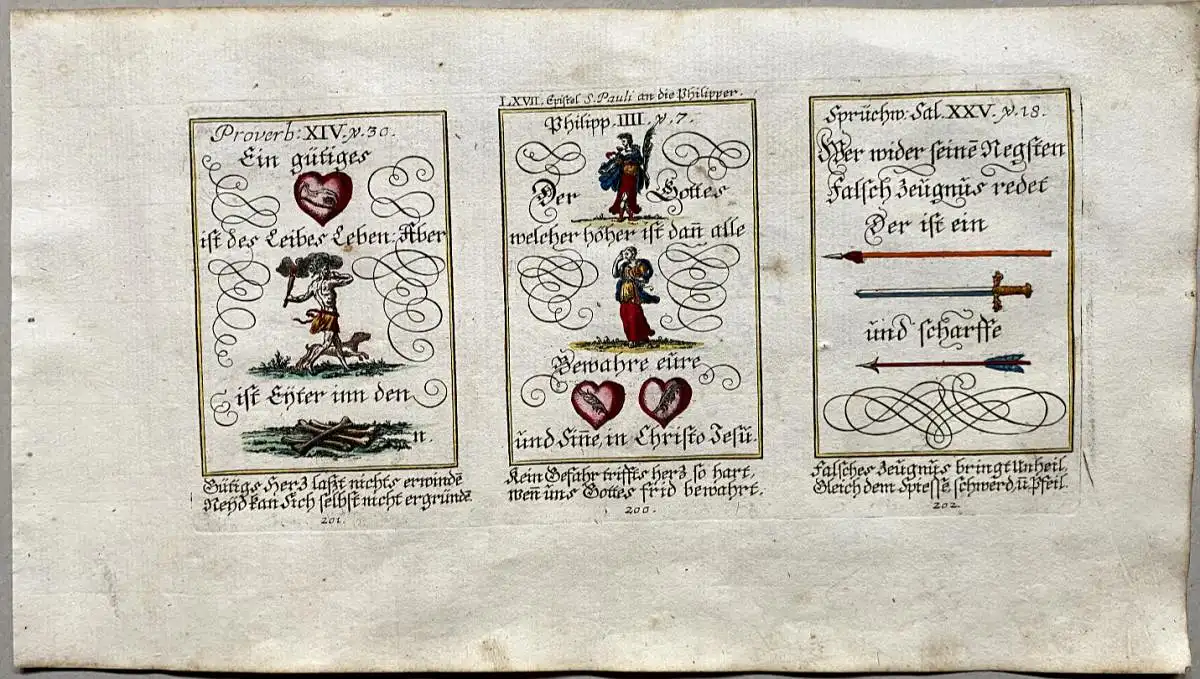 Proverb: XIV. v. 30.
Ein gütiges
ist des Leibes Leben: Aber
ist Eÿter inn den
n.
Gütigs Herz laßt nichts erwindē
Neÿd kan sich selbst nicht ergründē
201.
LXVII. Epistel S. Pauli an die Philipper.
Philipp. IIII. v. 7.
Der Gottes
welcher höher ist dañ alle
Bewahre eüre
und Siñe, in Christo Jesü.
Kein Gefahr triffts herz so hart,
weñ üns Gottes frid bewahrt.
200.
Sprüchw: Sal. XXV. v. 18.
Wer wider seinē Negsten
Falsch Zeügnüs redet
Der ist ein
ünd scharffe
Falsches Zeügnüs bringt Unheil,
Gleich dem Spiesse, schwerd, ū Pfeil.
202.